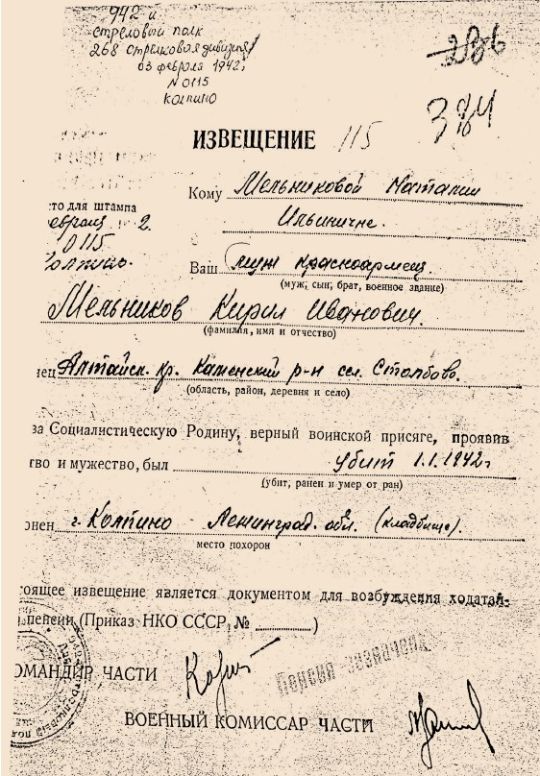 942 и
стрелковый полк
268 стрелковая дивизия
03 февраля 1942г
N 0115
колпино
286
ИЗВЕЩЕНИЕ 115
Кому Мельниковой Наталии
Ильиничне.
то для штампа
евраля 2.
0115
Колпино.
Ваш муж красноармеец
(муж, сын, брат, военное звание)
Мельников Кирил Иванович.
(фамилия, имя и отчество)
ец Алтайск. кр. Каменский р-н сел. Столбово.
(область, район, деревня и село)
за Социалистическую Родину, верный воинской присяге, проявив
тво и мужество, был убит 1.1.1942г
(убит, ранен и умер от ран)
онен г. Колпино Ленинград. обл. (кладбище).
место похорон
тоящее извещение является документом для возбуждения ходатай-
пенсии (Приказ НКО СССР, № )
Пенсия
ОМАНДИР ЧАСТИ
ВОЕННЫЙ КОМИССАР ЧАСТИ